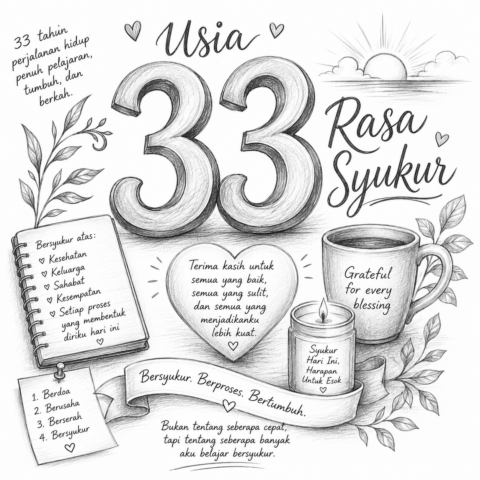 33 tahun
perjalanan hidup
penuh pelajaran,
tumbuh, dan
berkah.
Usia
33
Rasa
Syukur
Bersyukur atas:
Kesehatan
Keluarga
Sahabat
Kesempatan
Setiap proses
yang membentuk
diriku hari ini
Terima kasih untuk
semua yang baik,
semua yang sulit,
dan semua yang
menjadikanku
lebih kuat.
Grateful
for every
blessing
Syukur
Hari Ini,
Harapan
Untuk Esok
1. Berdoa
2. Berusaha
3. Berserah
4. Bersyukur
Bersyukur. Berproses. Bertumbuh.
Bukan tentang seberapa cepat,
tapi tentang seberapa banyak
aku belajar bersyukur.